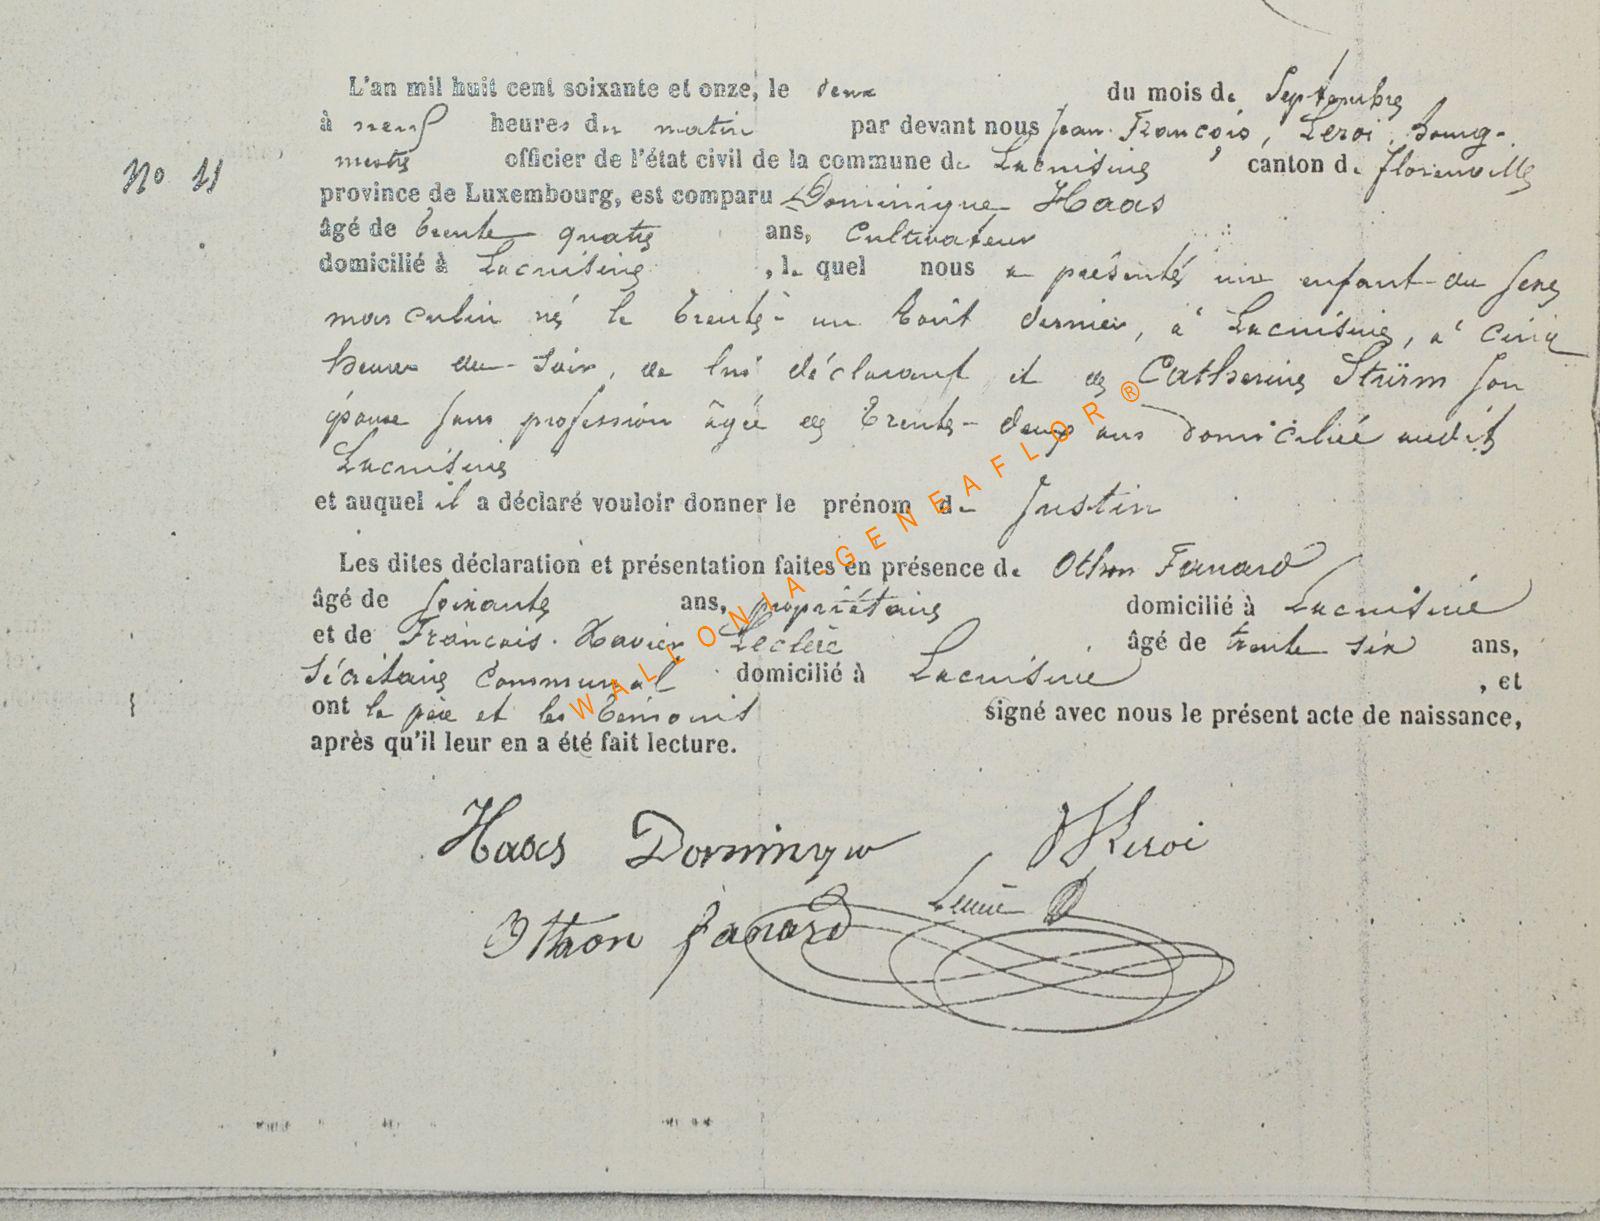 L'an mil huit cent soixante et onze, le deux du mois de Septembre
à neuf heures du matin par devant nous Jean François, Leroi, bourg-
mestre officier de l'état civil de la commune de Lacuisine canton de florenville
No 11
province de Luxembourg, est comparu Dominique Haas
âgé de trente quatre ans, cultivateur
domicilié à Lacuisine, le quel nous a présenté un enfant du sexe
masculin né le trente-un Août dernier, à Lacuisine, à cinq
heures du soir, de lui déclarant et de Catherine Stürm son
épouse sans profession âgée de trente-deux ans domiciliée audit
Lacuisine
et auquel il a déclaré vouloir donner le prénom de Justin
Les dites déclaration et présentation faites en présence de Othon Fanard
âgé de soixante ans, propriétaire domicilié à Lacuisine
et de François-Xavier Leclère âgé de trente six ans,
Sécrétaire Communal domicilié à Lacuisine, et
ont le père et les témoins signé avec nous le présent acte de naissance,
après qu'il leur en a été fait lecture.
WALLONIA-GENEAFLOR®
Haas Dominique Leroi
Othon fanard